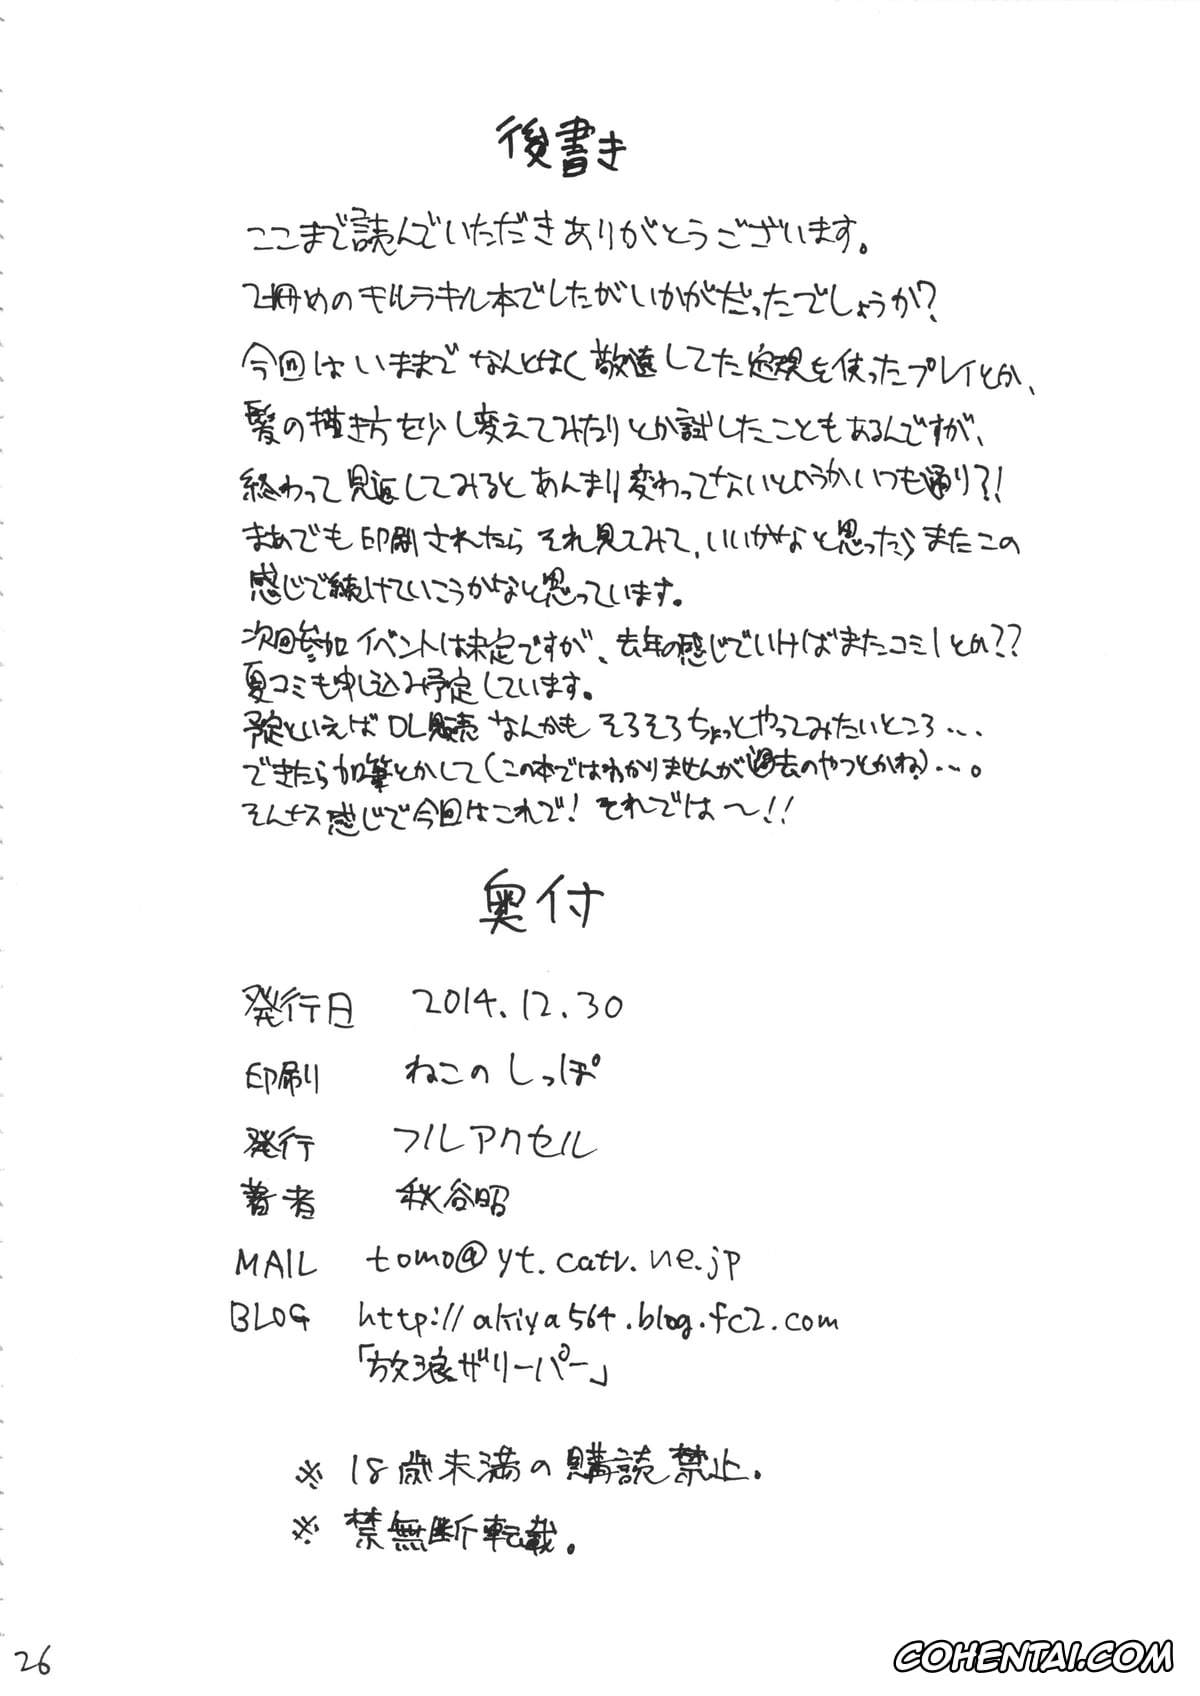 後書き
ここまで読んでいただきありがとうございます。
2冊めのキルラキル本でしたがいかがだったでしょうか?
今回はいままでなんとなく敬遠してた定規を使ったプレイとか、
髪の描き方を少し変えてみたりとか試したこともあるんですが、
終わって見返してみるとあんまり変わってないというかいつも通り?!
まあでも印刷されたらそれ見てみて、いいかなと思ったらまたこの
感じで続けていこうかなと思っています。
次回参加イベントは未定ですが、去年の感じでいけばまたコミ1とか??
夏コミも申し込み予定しています。
予定といえばDL販売なんかもそろそろちょっとやってみたいところ・・・
できたら加筆とかして(この本ではわかりませんが過去のやつとかね)・・・。
そんナス感じで今回はこれで!それでは〜!!
奥付
発行日 2014.12.30
印刷 ねこのしっぽ
発行 フルアクセル
著者 秋谷昭
MAIL tomo@yt.catv.ne.jp
BLOG http://akiya564.blog.fc2.com
「放浪ザリーパー」
※18歳未満の購読禁止.
※禁無断転載.
26
COHENTAI.COM